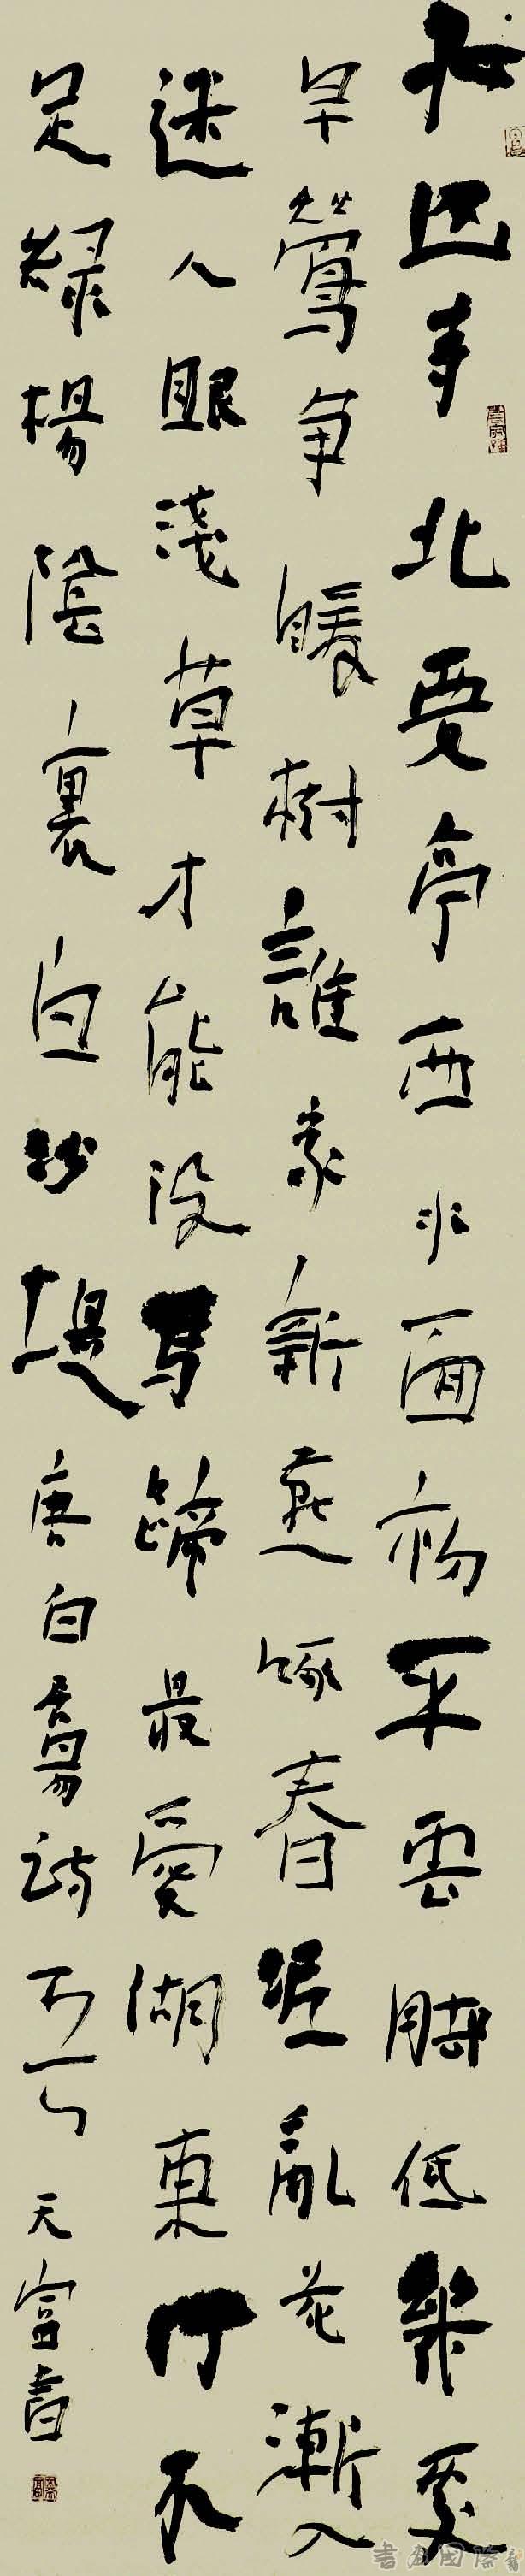 孤山寺北賈亭西水面初平雲脚低幾處
早鶯爭暖樹誰家新燕啄春泥亂花漸入
迷人眼淺草才能沒馬蹄最愛湖東行不
足綠楊陰裏白沙堤 唐白居易詩 天富書
書畫國際